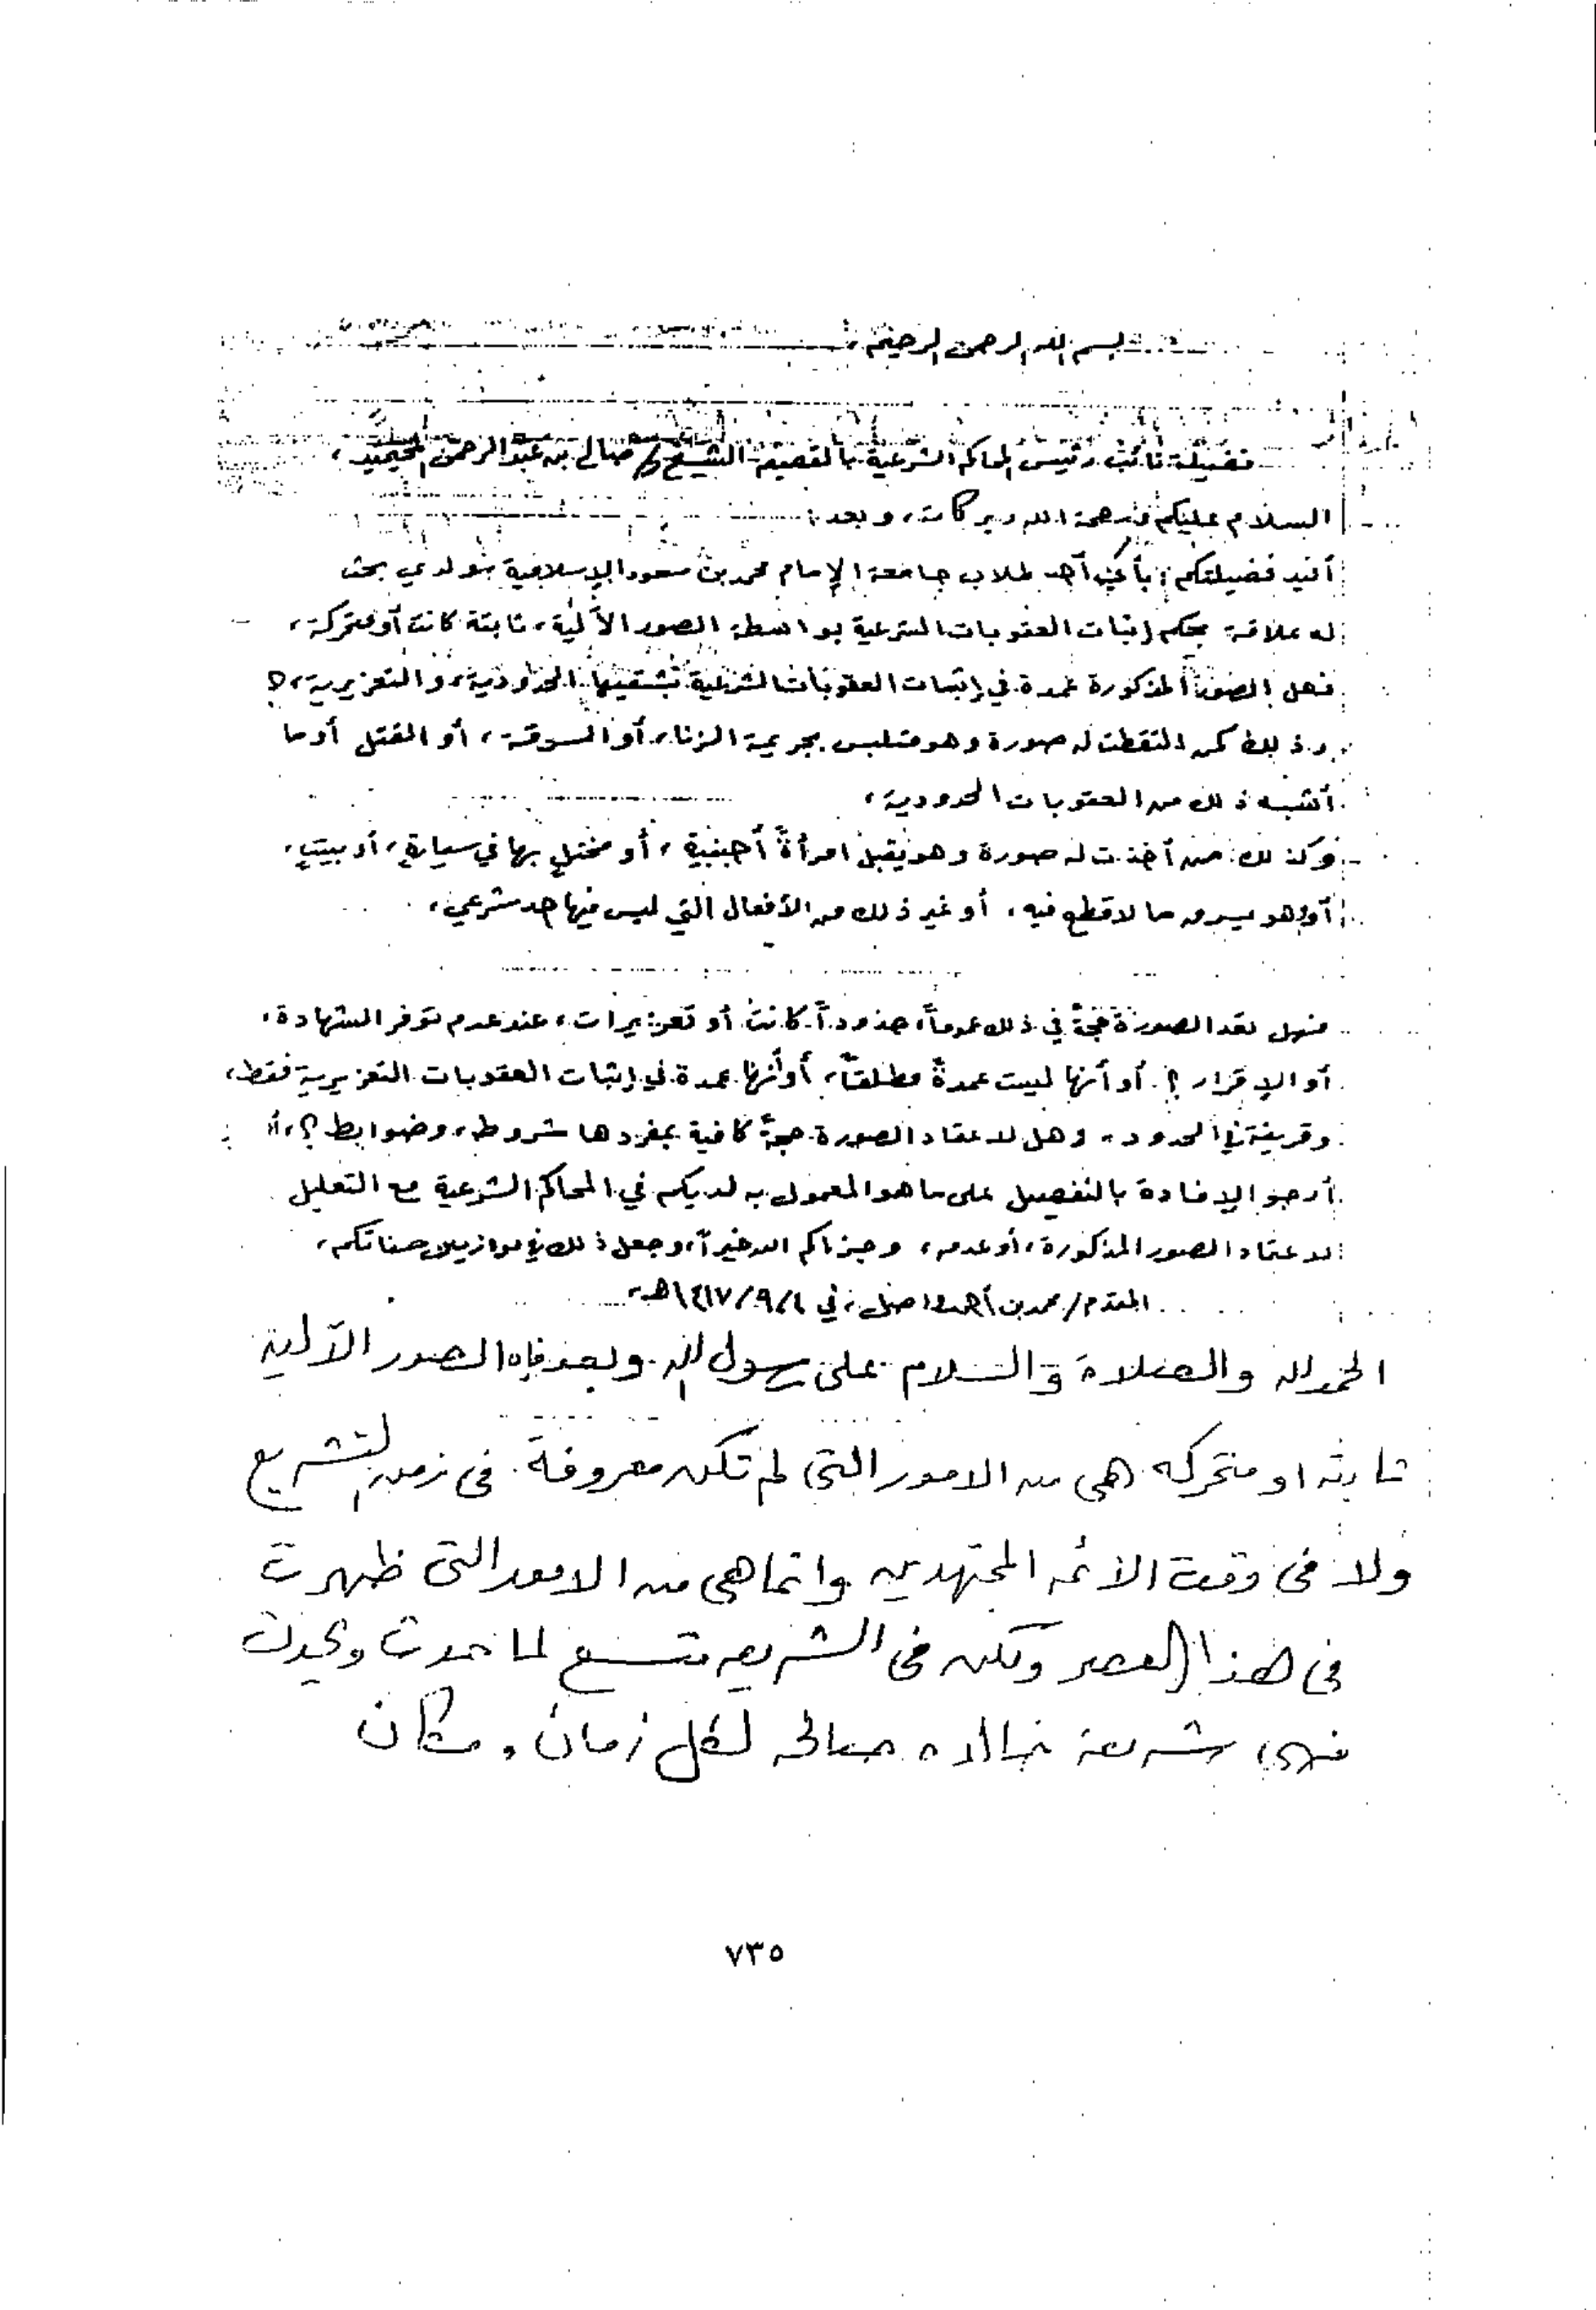 بسم الله الرحمن الرحيم،
فضيلة نائب رئيس المحاكم الشرعية بالقصيم الشيخ/ صالح بن عبد الرحمن المحيميد،
السلام عليكم ورحمة الله وبركاته، وبعد:
أفيد فضيلتكم: بأني أحد طلاب جامعة الإمام محمد بن سعود الإسلامية بنو لدي بحث
له علاقة بحكم إثبات العقوبات الشرعية بواسطة الصور الآلية، ثابتة كانت أو متحركة،
فهل الصور المذكورة عمدة في إثبات العقوبات الشرعية بشقيها: الحدودية، والتعزيرية، ؟
وذلك كمن التقطت له صورة وهو متلبس بجريمة الزنا، أو السرقة، أو القتل أو ما
أشبه ذلك من العقوبات الحدودية،
وكذلك: من أخذت له صورة وهو يقبل امرأةً أجنبية، أو مختلٍ بها في سيارةٍ، أو بيتٍ،
أو هو يسرق ما لا قطع فيه، أو غير ذلك من الأفعال التي ليس فيها حد شرعي،
فهل تعد الصورة حجةً في ذلك عموماً، حدوداً كانت أو تعزيرات، عند عدم توفر الشهادة،
أو الإقرار؟. أو أنها ليست عمدةً مطلقاً، أو أنها عمدة في إثبات العقوبات التعزيرية فقط،
وقرينة في الحدود، وهل لاعتماد الصورة حجةً كافية بمفردها شروط، وضوابط؟،
أرجو الإفادة بالتفصيل على ما هو المعمول به لديكم في المحاكم الشرعية مع التعليل
لاعتماد الصور المذكورة، أو عدمه، وجزاكم الله خيراً، وجعل ذلك في موازين حسناتكم،
المقدم/ محمد بن أحمد واصل، في ١٤١٧/٩/١هـ،
الحمد لله والصلاة والسلام على رسول الله. وبعد فإن الصور الآلية
ثابته او متحركه هي من الامور التي لم تكن معروفة في زمن التشريع
ولا في وقت الأئمه المجتهدين وانما هي من الامور التي ظهرت
في هذا العصر ولكن في الشريعه متسع لما حدث ويحدث
فهي شريعة خالده صالحه لكل زمان ومكان
٧٣٥